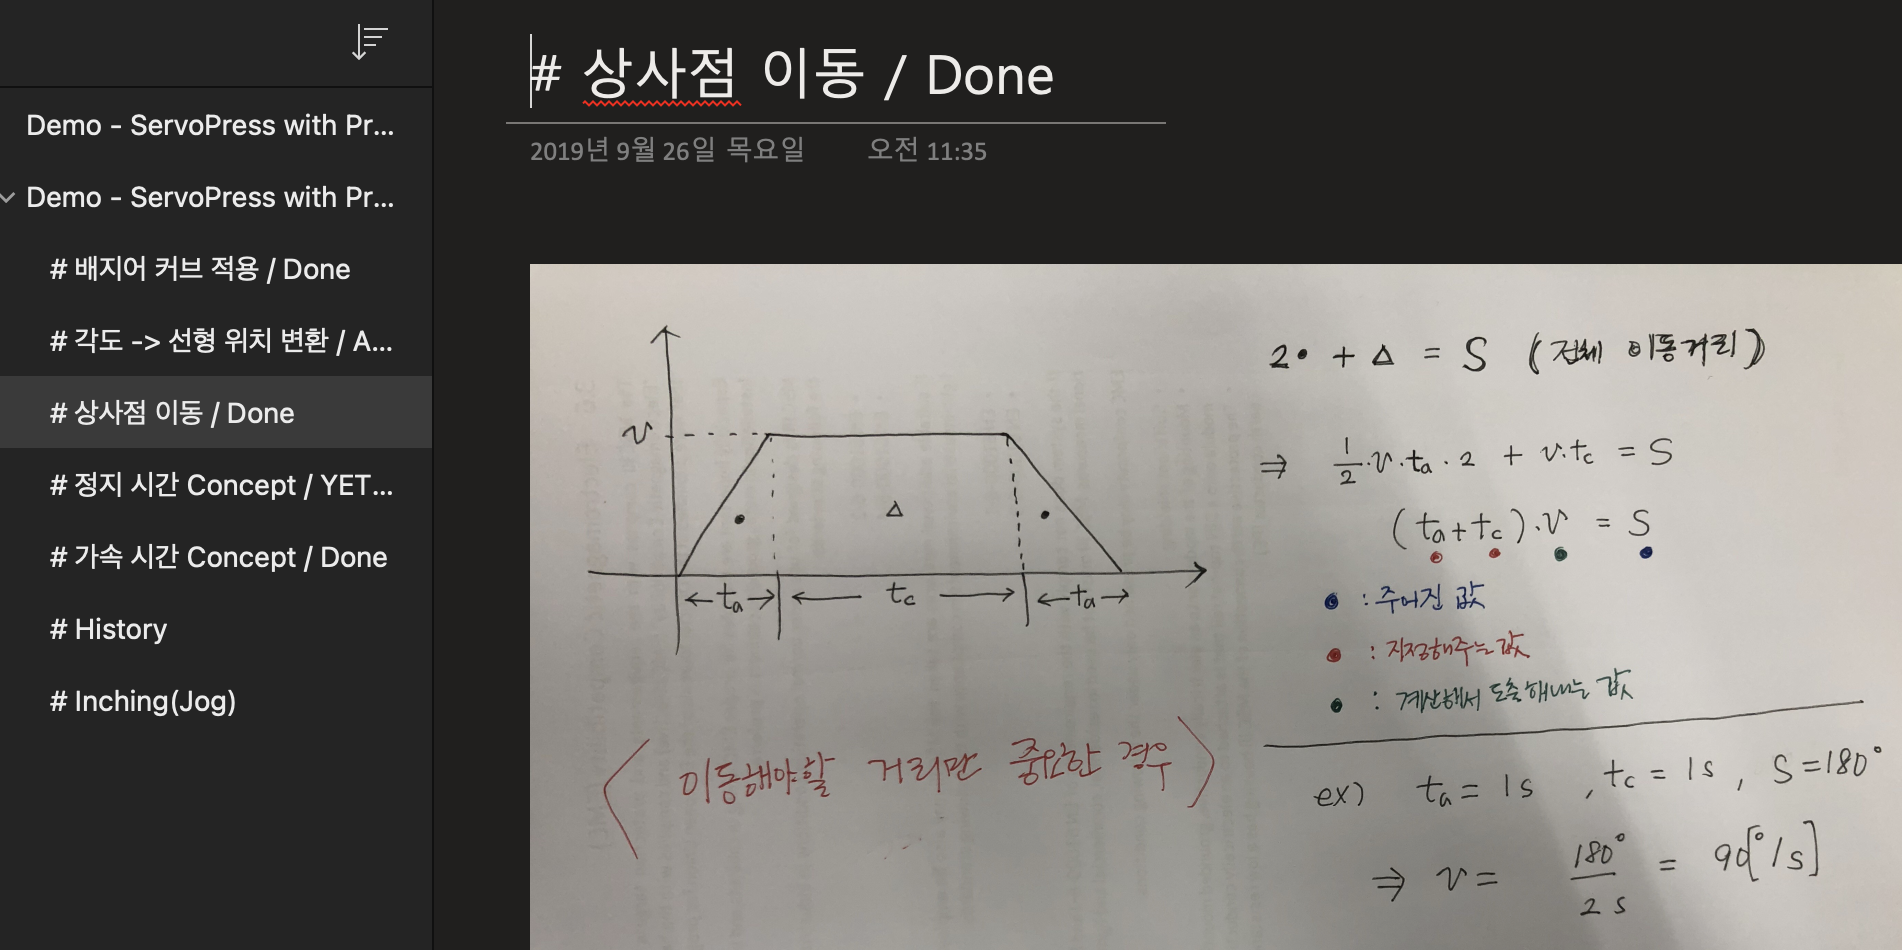 Demo - ServoPress with Pr...
Demo - ServoPress with Pr...
# 배지어 커브 적용 / Done
# 각도 -> 선형 위치 변환 / A...
# 상사점 이동 / Done
# 정지 시간 Concept / YET...
# 가속 시간 Concept / Done
# History
# Inching(Jog)
# 상사점 이동 / Done
2019년 9월 26일 목요일 오전 11:35
v
Δ
ta tc ta
2• + Δ = S (전체 이동거리)
⇒ 1/2·v·ta·2 + v·tc = S
(ta+tc)·v = S
• : 주어진 값
• : 지정해주는 값
• : 계산해서 도출해내는 값
〈 이동해야할 거리만 중요한 경우 〉
ex) ta = 1s , tc = 1s , S = 180°
⇒ v = 180°/2s = 90[°/s]